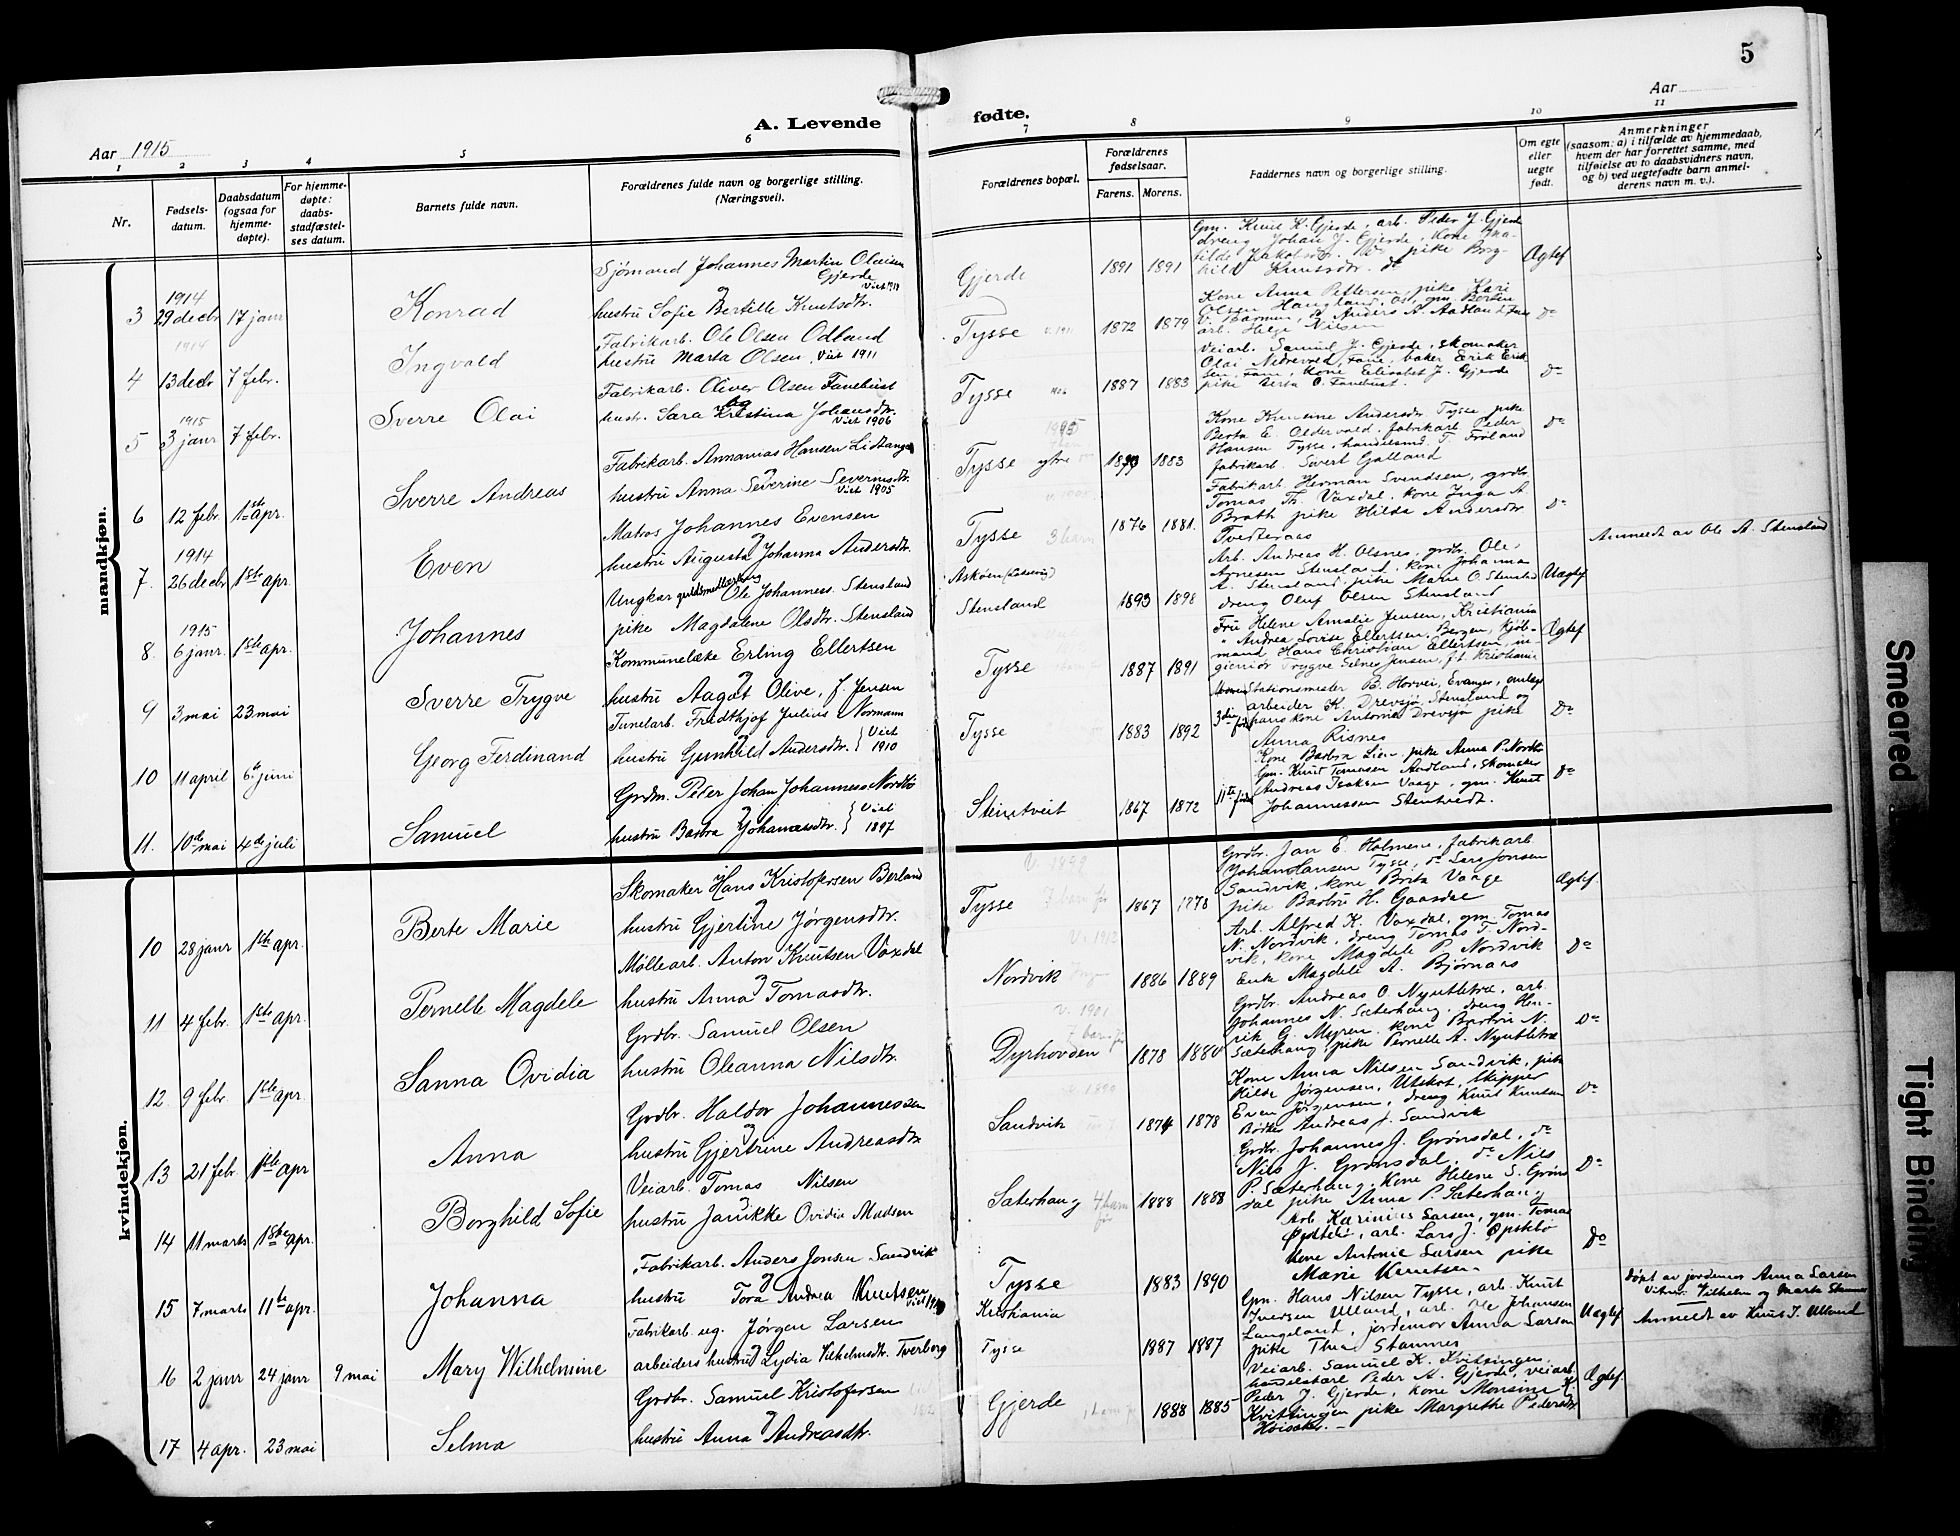 5
Aar 1915
A. Levende
fødte.
Aar
1 2 3 4 5 6 7 8 9 10 11
Nr.
Fødsels-
datum.
Daabsdatum
(ogsaa for
hjemme-
døpte).
For hjemme-
døpte:
daabs-
stadfæstel-
ses datum.
Barnets fulde navn.
Forældrenes fulde navn og borgerlige stilling.
(Næringsvei).
Forældrenes bopæl.
Forældrenes
fødselsaar.
Farens. Morens.
Faddernes navn og borgerlige stilling.
Om egte
eller
uegte
født.
Anmerkninger
(saasom: a) i tilfælde av hjemmedaab,
hvem der har forrettet samme, med
tilføielse av to daabsvidners navn,
og b) ved uegtefødte barn anmel-
derens navn m. v.).
mandkjøn.
3 1914 29 decbr 17 janr Konrad
Sjømand Johannes Martin Olaisen
Gjerde
hustru Sofie Bertille Knutsdtr.
Gjerde 1891 1891
Gm. Knut K. Gjerde, arb. Peder J. Gjerde
dreng Johan J. Gjerde, Kone
Ægtef
4 1914 13 decbr 7 febr. Ingvald
Fabrikarb. Ole Olsen Odland
hustru Marta Olsen, Viet 1911
Tysse 1872 1879
Kone Anna Pettersen, pike Kari
Olsen Haugland,
arb. Helge Nilsen
Do
5 1915 3 janr 7 febr. Sverre Olai
Fabrikarb. Oliver Olsen Fanebust
og
hust. Sara Kristina Johansdtr.
Viet 1906
Tysse 1887 1883
Veiarb. Samuel J. Gjerde, skomaker
Olai Nedrevold, Fane, baker Erik Erik
sen, Fane, Kone Elisabet J. Gjerde
pike Berta O. Fanebust.
Do
6 12 febr. 1ste apr. Sverre Andreas
Fabrikarb. Annanias Hansen Lidtangen
hustru Anna Severine Severinsdtr.
Viet 1905
Tysse ytre 1883
Berta E. Oldervold, fabrikarb. Peder
Hansen Tysse, handelsmd. T. Frøland
fabrikarb. Sivert Galland
Do
7. 1914 26 decbr 1ste apr. Even
Matros Johannes Evensen
hustru Augusta Johanna Andersdtr.
Tysse 3 barn 1876 1881.
Fabrikarb. Herman Svendsen, grdbr.
Tomas Th. Vaxdal, kone Inga A.
Brath pike Hilda Andersdtr
Tvedteraas
Do
8. 1915 6 janr. 1ste apr. Johannes
Ungkar guldsmedlærling Ole Johanness. Stensland
pike Magdalene Olsdtr. Stensland
Askøen
Stensland 1893 1898
Arb. Andreas H. Olsnes, grdbr. Ole
Agnesen Stensland, kone Johanna
A. Stensland, pike Marie O. Stensland
dreng Oluf Olsen Stensland
Uægtef
Anmeldt av Ole A. Stensland
9 3 mai 23 mai Sverre Trygve
Kommunelæke Erling Ellertsen
hustru Aagot Olive, f. Jensen
Tysse 1887 1891
Fru Helene Amalie Jensen, Kristiania
" Andrea Lovise Ellertsen, Bergen, kjøb-
mand Hans Christian Ellertsen, in-
geniør Trygve Selnes Jensen, p.t. Kristiania
Ægtef
10 11 april 6te juni Georg Ferdinand
Tunelarb. Fredthjof Julius Normann
hustru Gunhild Andersdtr. Viet 1910
Tysse 1883 1892
Stationsmester B. Horvei, Evanger, anlægs
arbeider K. Drevsjø, Stensland og
hans kone Antonie Drevsjø pike
Anna Risnes
Do
11. 10de mai 4de juli Samuel
Grdm. Peder Johan Johanness Nordbø
hustru Barbra Johannesdtr. Viet 1897
Steintveit 1867 1872
Kone Barbra Lien, pike Anna P. Nordbø
Gm. Knut Tomasen Aadland, skomaker
Andreas Isaksen Vaage, gm. Knut
Johannessen Stentvedt.
Do
kvindekjøn.
10 28 janr 1ste apr. Berte Marie
Skomaker Hans Kristofersen Berland
hustru Gjertine Jørgensdtr.
Tysse 1867 1878
Grdbr. Jan E. Holmene, fabrikarb
Johan Hansen Tysse, do Lars Jonsen
Sandvik, kone Brita Vaage
pike Barbru H. Gaasdal
Ægtef.
11 4 febr. 1ste apr. Pernelle Magdele
Møllearb. Anton Knutsen Vaxdal
hustru Anna Tomasdtr.
Nordvik 1886 1889
Arb. Alfred K. Vaxdal, gm. Tomas
N. Nordvik, dreng Tomas T. Nord-
vik, kone Magdele P. Nordvik
Enke Magdele A. Bjørnaas
Do
12. 9 febr. 1ste apr. Sanna Ovidia
Grdbr. Samuel Olsen
hustru Oleanna Nilsdtr.
Dyrhovden 1878 1880
Grdbr. Andreas O. Nyutletræ, arb.
Johannes N. Sæterhaug, dreng Hen-
rik G. Myren, kone Barbru N.
Sæterhaug, pike Pernelle A. Nyutletræ
Do
13 21 febr 1ste apr Anna
Grdbr. Haldor Johannessen
hustru Gjertrine Andreasdtr
Sandvik 1874 1878
Kone Anna Nilsen Sandvik, pike
Hilda Jørgensen, Utskot, Skipper
Even Jørgensen, dreng Knut Knutsen
Bødtker Andreas J. Sandvik
Do
14 11 marts 1ste apr. Borghild Sofie
Veiarb. Tomas Nilsen
hustru Janikke Ovidia Madsen
Sæterhaug 4 barn før 1888 1888
Grdbr. Johannes J. Grønsdal, do
Nils J. Grønsdal, do Nils
P. Sæterhaug, Kone Helene S. Grøns
dal pike Anna P. Sæterhaug
Do
15 7. marts 11te apr. Johanna
Fabrikarb. Anders Jonsen Sandvik
hustru Tora Andrea Knutsen
Tysse 1883 1890
Arb. Karinius Larsen, gm. Tomas
Øpstebø, arb. Lars J. Øpstebø
Kone Antonie Larsen pike
Marie Knutsen
Do
16 2 janr 24 janr 9 mai Mary Wilhelmine
Fabrikarb. ug. Jørgen Larsen
arbeiders hustru Lydia Vilhelmsdtr. Tverborg
Kristiania
Tysse 1887 1887
Gm. Hans Nilsen Tysse, arb. Knut
Iversen Ulland, arb. Ole Johansen
Langeland, jordemor Anna Larsen
pike Thea Stamnes
Uægtef
Døpt av jordemor Anna Larsen
Vitner: Vilhelm og Marta Stamnes
Anmeldt av Knut I. Ulland
17 4 apr. 23 mai Selma
Grdbr. Samuel Kristofersen
hustru Anna Andreasdtr.
Gjerde 1888 1885
Veiarb. Samuel K. Kvittingen
handelskarl Peder A. Gjerde, veiarb
Peder J. Gjerde, kone Monsine K.
Kvittingen pike Margrethe Pedersdtr
Høisæter.
Ægtef.
Smeared
Tight Binding